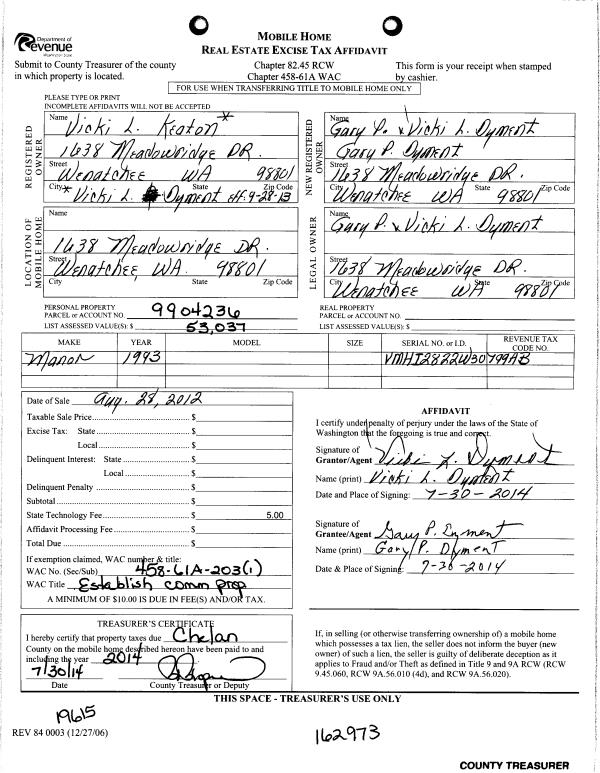 Department of
Revenue
Washington State
MOBILE HOME
REAL ESTATE EXCISE TAX AFFIDAVIT
Submit to County Treasurer of the county
in which property is located.
Chapter 82.45 RCW
Chapter 458-61A WAC
This form is your receipt when stamped
by cashier.
FOR USE WHEN TRANSFERRING TITLE TO MOBILE HOME ONLY
PLEASE TYPE OR PRINT
INCOMPLETE AFFIDAVITS WILL NOT BE ACCEPTED
REGISTERED OWNER
Name Vicki L. Keaton*
1638 Meadowridge DR.
Street
Wenatchee WA 98801
City State Zip Code
* Vicki L. Dyment eff. 9-28-13
NEW REGISTERED OWNER
Name Gary P. & Vicki L. Dyment
Gary P. Dyment
1638 Meadowridge DR.
Street
Wenatchee WA 98801
City State Zip Code
LOCATION OF MOBILE HOME
Name
1638 Meadowridge DR.
Street
Wenatchee, WA. 98801
City State Zip Code
LEGAL OWNER
Name
Gary P. & Vicki L. Dyment
1638 Meadowridge DR.
Street
Wenatchee WA 98801
City State Zip Code
PERSONAL PROPERTY
PARCEL or ACCOUNT NO. 9904236
LIST ASSESSED VALUE(S): $ 53,037
REAL PROPERTY
PARCEL or ACCOUNT NO.
LIST ASSESSED VALUE(S): $
MAKE YEAR MODEL SIZE SERIAL NO. or I.D. REVENUE TAX CODE NO.
Manor 1993 VMHI2822W30799AB
Date of Sale Aug. 28, 2012
Taxable Sale Price $
Excise Tax: State $
Local $
Delinquent Interest: State $
Local $
Delinquent Penalty $
Subtotal $
State Technology Fee $ 5.00
Affidavit Processing Fee $
Total Due $
If exemption claimed, WAC number & title:
WAC No. (Sec/Sub) 458-61A-203(1)
WAC Title Establish comm prop
A MINIMUM OF $10.00 IS DUE IN FEE(S) AND/OR TAX.
AFFIDAVIT
I certify under penalty of perjury under the laws of the State of
Washington that the foregoing is true and correct.
Signature of
Grantor/Agent Vicki L. Dyment
Name (print) Vicki L. Dyment
Date and Place of Signing: 7-30-2014
Signature of
Grantee/Agent Gary P. Dyment
Name (print) Gary P. Dyment
Date & Place of Signing: 7-30-2014
TREASURER'S CERTIFICATE
I hereby certify that property taxes due Chelan
County on the mobile home described hereon have been paid to and
including the year 2014
7/30/14
Date County Treasurer or Deputy
If, in selling (or otherwise transferring ownership of) a mobile home
which possesses a tax lien, the seller does not inform the buyer (new
owner) of such a lien, the seller is guilty of deliberate deception as it
applies to Fraud and/or Theft as defined in Title 9 and 9A RCW (RCW
9.45.060, RCW 9A.56.010 (4d), and RCW 9A.56.020).
THIS SPACE - TREASURER'S USE ONLY
19615
REV 84 0003 (12/27/06)
162973
COUNTY TREASURER